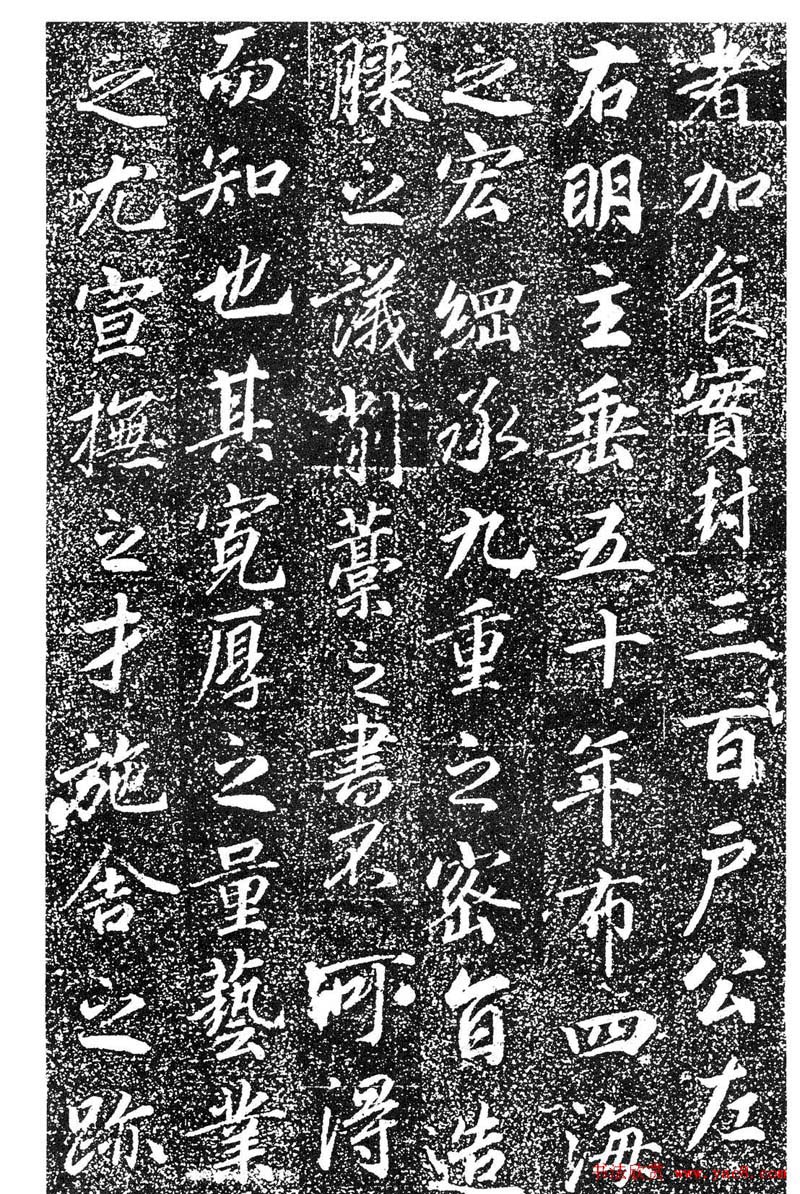 者加食實封三百户公左
右明主垂五十年布四海
之宏綱承九重之密旨造
膝之議削藁之書不可得
而知也其寬厚之量藝業
之尤宣撫之才施舍之跡
书法欣赏 www.yac8.com